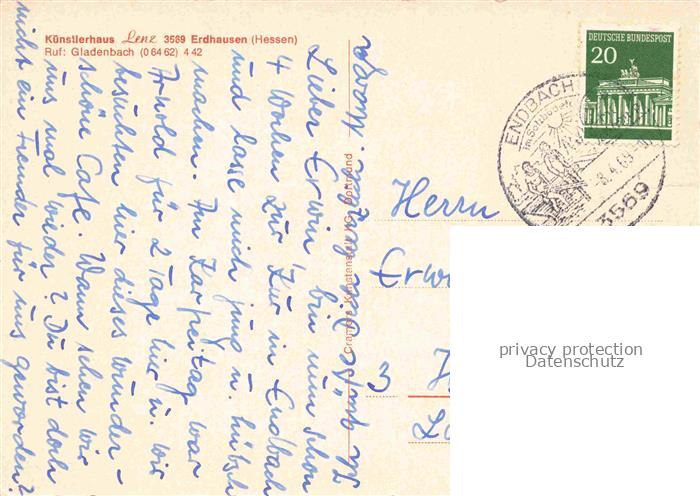 Künstlerhaus Lenz 3589 Erdhausen (Hessen)
Ruf: Gladenbach (0 64 62) 4 42
Lieber Erwin, bin nun schon
4 Wochen zur Kur in Endbach
und lasse mich jung u. hübsch
machen. Am Karfreitag war
Arnold für 2 Tage hier u. wir
besuchten hier dieses wunder-
schöne Cafe. Wann sehen wir
uns mal wieder? Du bist doch
nicht ein Fremder für uns geworden?
Cramers Kunstanstalt KG, Dortmund
DEUTSCHE BUNDESPOST
20
ENDBACH
-8.4.69
3569
Herrn
3
privacy protection
Datenschutz